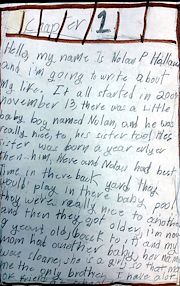 Chapter 1
Hello, my name Is Nolan P Hallowa
and, i'm going to write about
my life. It all started in 200
november 13 there was a Little
baby boy named Nolan, and he was
really nice, to, his sister too! He's
sister was born a year eylyer
then him, Neve and Nolan had best
time in there back yard they
would play in there baby pool,
they were really nice to another
and then they got older, I'm now
9 years old, back to it and my
mom had another baby her name
was Sloane, she is a girl so that, ma
me the only brother, I have alot